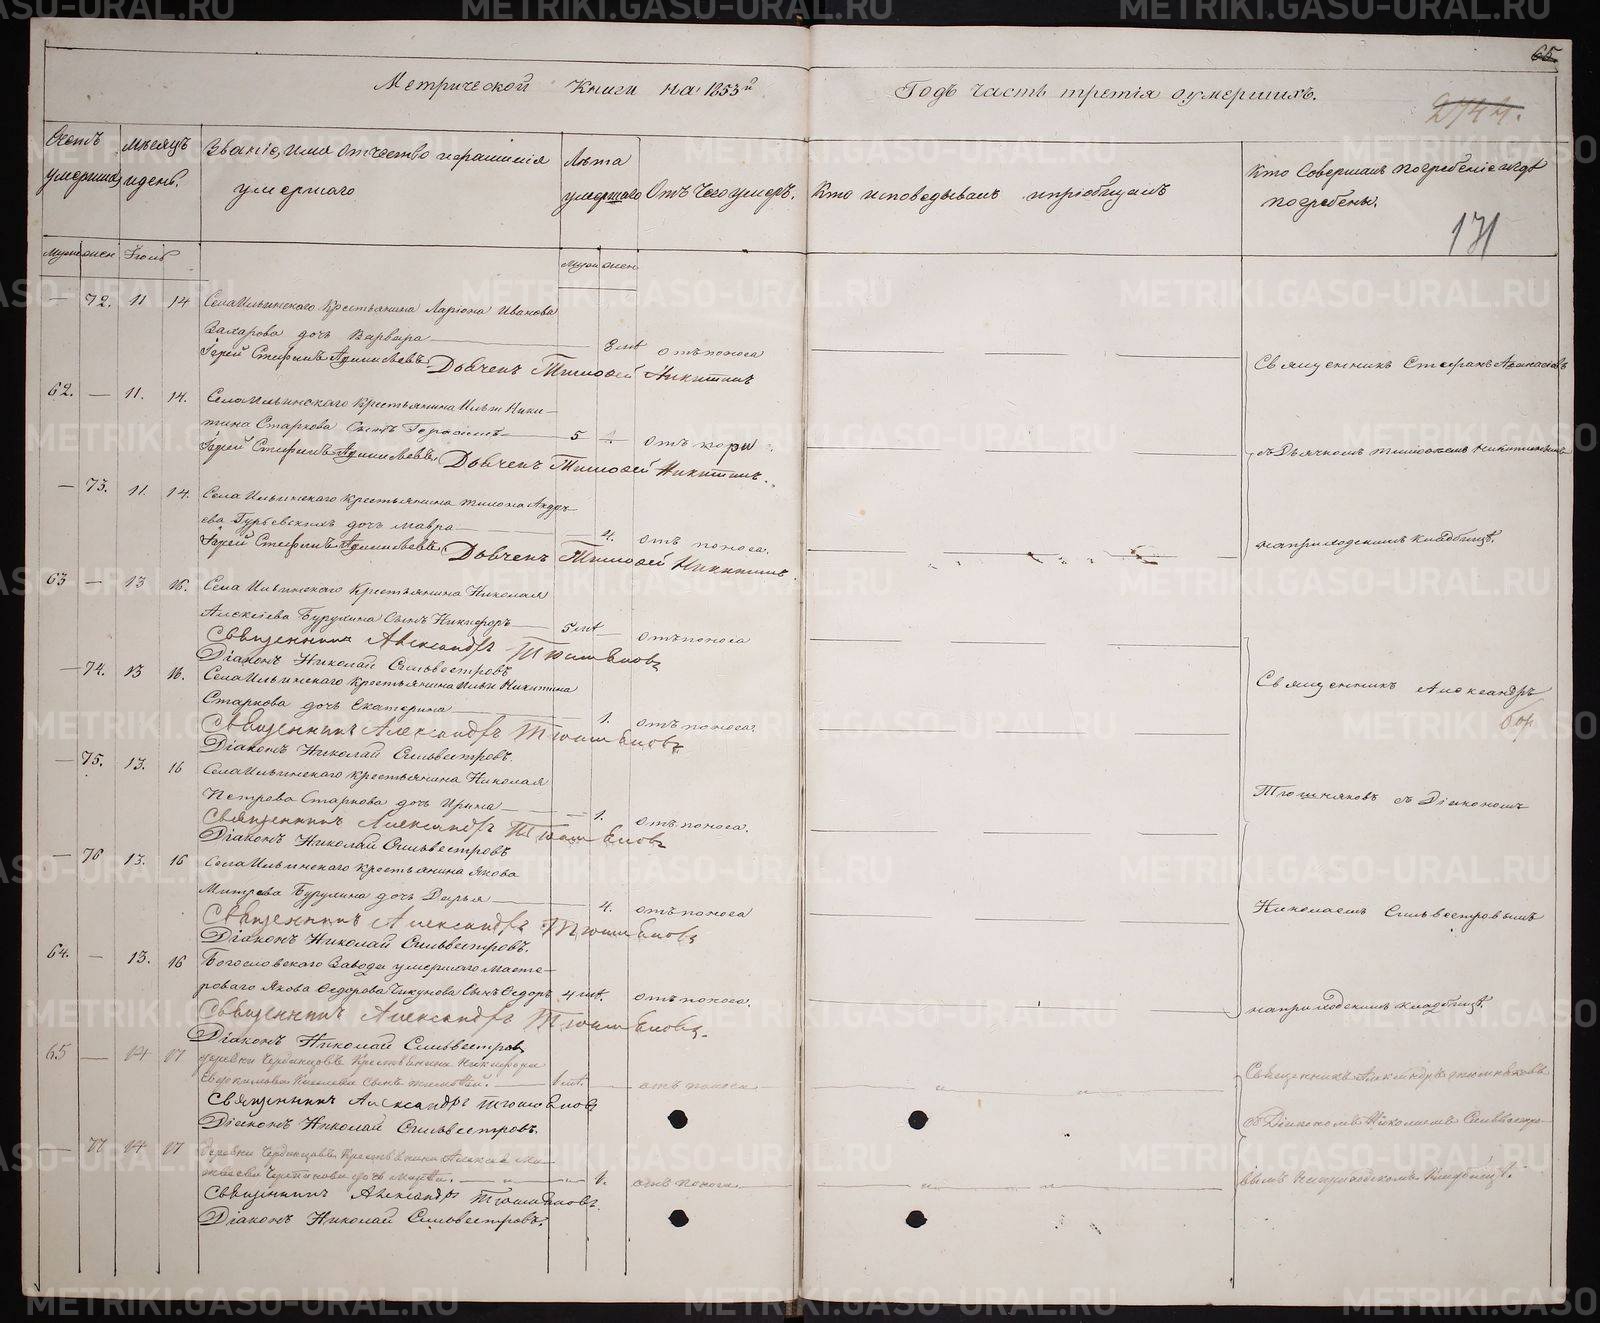 65.
Метрической Книги на 1853й Годъ часть третія о умершихъ.
2744.
Счетъ умершихъ
мѣсяцъ и день.
Званіе, имя отчество и фамилія умершаго
Лѣта умершаго
Отъ чего умеръ.
Кто исповедывалъ и пріобщалъ
Кто Совершалъ погребеніе и гдѣ погребены.
131
Муж жен Іюль
муж жен
— 72. 11 14 Села Ильинскаго Крестьянина Ларіона Иванова
Захарова дочь Варвара 3 лѣт отъ поноса
Іерей Стефанъ Дьячекъ Тимофей Никитинъ
Священникъ Стефанъ
62. — 11. 14. Села Ильинскаго Крестьянина Ильи Ники-
тина Старкова Сынъ Герасимъ 5 отъ кори
Іерей Стефанъ Дьячекъ Тимофей Никитинъ.
съ Дьячкомъ Тимофеемъ Никитинымъ
— 73. 11 14. Села Ильинскаго Крестьянина Андре-
ева дочь Мавра 4. отъ поноса.
Іерей Стефанъ Дьячекъ Тимофей Никитинъ
на приходскомъ кладбищѣ.
63 — 13 16. Села Ильинскаго Крестьянина Николая
Алексѣева Бурухина Сынъ Никифоръ 5 лѣт отъ поноса
Священникъ Александръ Тюшняковъ
Діаконъ Николай Сильвестровъ
— 74. 13 16. Села Ильинскаго Крестьянина Ильи Никитина
Старкова дочь Екатерина 1. отъ поноса.
Священникъ Александръ Тюшняковъ
Діаконъ Николай Сильвестровъ.
Священникъ Александръ
— 75. 13. 16 Села Ильинскаго Крестьянина Николая
Петрова Старкова дочь Ирина 1. отъ поноса.
Священникъ Александръ Тюшняковъ
Діаконъ Николай Сильвестровъ
Тюшняковъ съ Діакономъ
— 76 13. 16 Села Ильинскаго Крестьянина Якова
Митрева Бурухина дочь Дарья 4. отъ поноса
Священникъ Александръ Тюшняковъ
Діаконъ Николай Сильвестровъ.
Николаемъ Сильвестровымъ
64. — 13. 16 Богословскаго Завода умершаго масте-
роваго Якова Ѳедорова Чикунова Сынъ Ѳедоръ 4 лѣт. отъ поноса.
Священникъ Александръ Тюшняковъ.
Діаконъ Николай Сильвестровъ
на приходскомъ кладбищѣ.
65 — 14 17 деревни Крестьянина Никифора
Евдокимова Киселева сынъ Тимофей. 1 лѣт. отъ поноса
Священникъ Александръ Тюшняковъ
Діаконъ Николай Сильвестровъ.
Священникъ Александръ Тюшняковъ
съ Діакономъ Николаемъ Сильвестро-
— 77 14 17 деревни Крестьянина Алексѣя Ма-
твѣева дочь 1. отъ поноса
Священникъ Александръ Тюшняковъ.
Діаконъ Николай Сильвестровъ.
вымъ на приходскомъ кладбищѣ.
METRIKI.GASO-URAL.RU